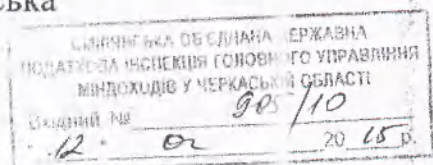 ська
ОБ'ЄДНАНА ДЕРЖАВНА
ПОДАТКОВА ІНСПЕКЦІЯ ГОЛОВНОГО УПРАВЛІННЯ
МІНДОХОДІВ У ЧЕРКАСЬКІЙ ОБЛАСТІ
Вхідний № 985/10
"12" 02 2015 р.